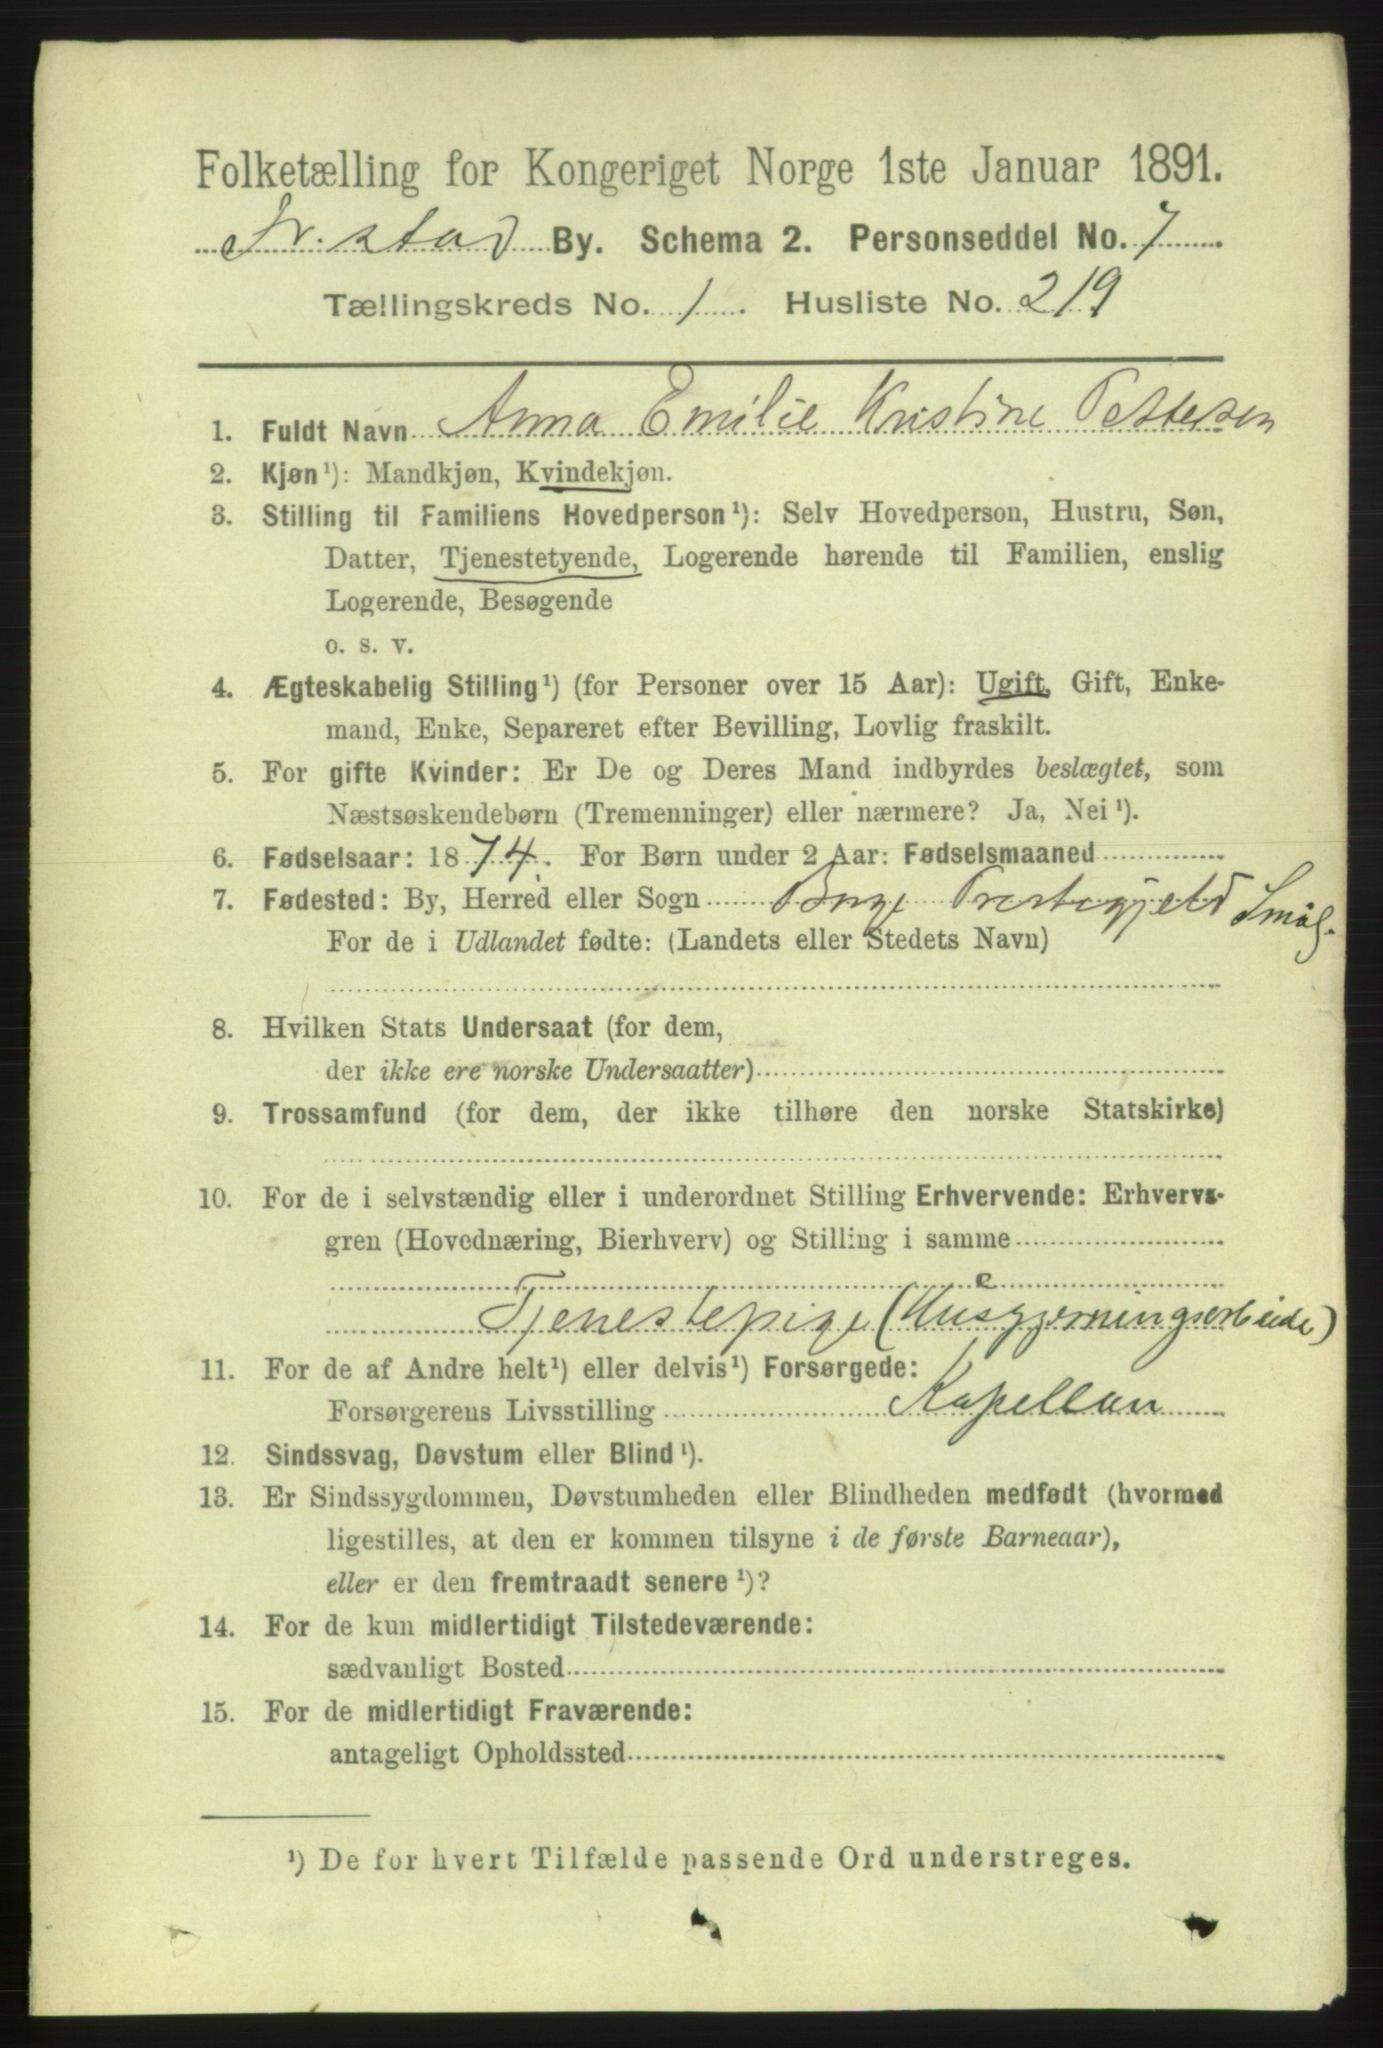 Folketælling for Kongeriget Norge 1ste Januar 1891.
Fr.stad By. Schema 2. Personseddel No. 7
Tællingskreds No. 1. Husliste No. 219
1. Fuldt Navn Anna Emilie Kristine Pettersen
2. Kjøn¹): Mandkjøn, Kvindekjøn.
3. Stilling til Familiens Hovedperson¹): Selv Hovedperson, Hustru, Søn,
Datter, Tjenestetyende, Logerende hørende til Familien, enslig
Logerende, Besøgende
o. s. v.
4. Ægteskabelig Stilling¹) (for Personer over 15 Aar): Ugift, Gift, Enke-
mand, Enke, Separeret efter Bevilling, Lovlig fraskilt.
5. For gifte Kvinder: Er De og Deres Mand indbyrdes beslægtet, som
Næstsøskendebørn (Tremenninger) eller nærmere? Ja, Nei¹).
6. Fødselsaar: 1874. For Børn under 2 Aar: Fødselsmaaned
7. Fødested: By, Herred eller Sogn Borge Prestegjeld Smål.
For de i Udlandet fødte: (Landets eller Stedets Navn)
8. Hvilken Stats Undersaat (for dem,
der ikke ere norske Undersaatter)
9. Trossamfund (for dem, der ikke tilhøre den norske Statskirke)
10. For de i selvstændig eller i underordnet Stilling Erhvervende: Erhvervs-
gren (Hovednæring, Bierhverv) og Stilling i samme
e
Tjenestepige (Husgjerningsarbeide)
11. For de af Andre helt¹) eller delvis¹) Forsørgede:
Forsørgerens Livsstilling Kapellan
12. Sindssvag, Døvstum eller Blind¹).
13. Er Sindssygdommen, Døvstumheden eller Blindheden medfødt (hvormed
ligestilles, at den er kommen tilsyne i de første Barneaar),
eller er den fremtraadt senere¹)?
14. For de kun midlertidigt Tilstedeværende:
sædvanligt Bosted
15. For de midlertidigt Fraværende:
antageligt Opholdssted
¹) De for hvert Tilfælde passende Ord understreges.